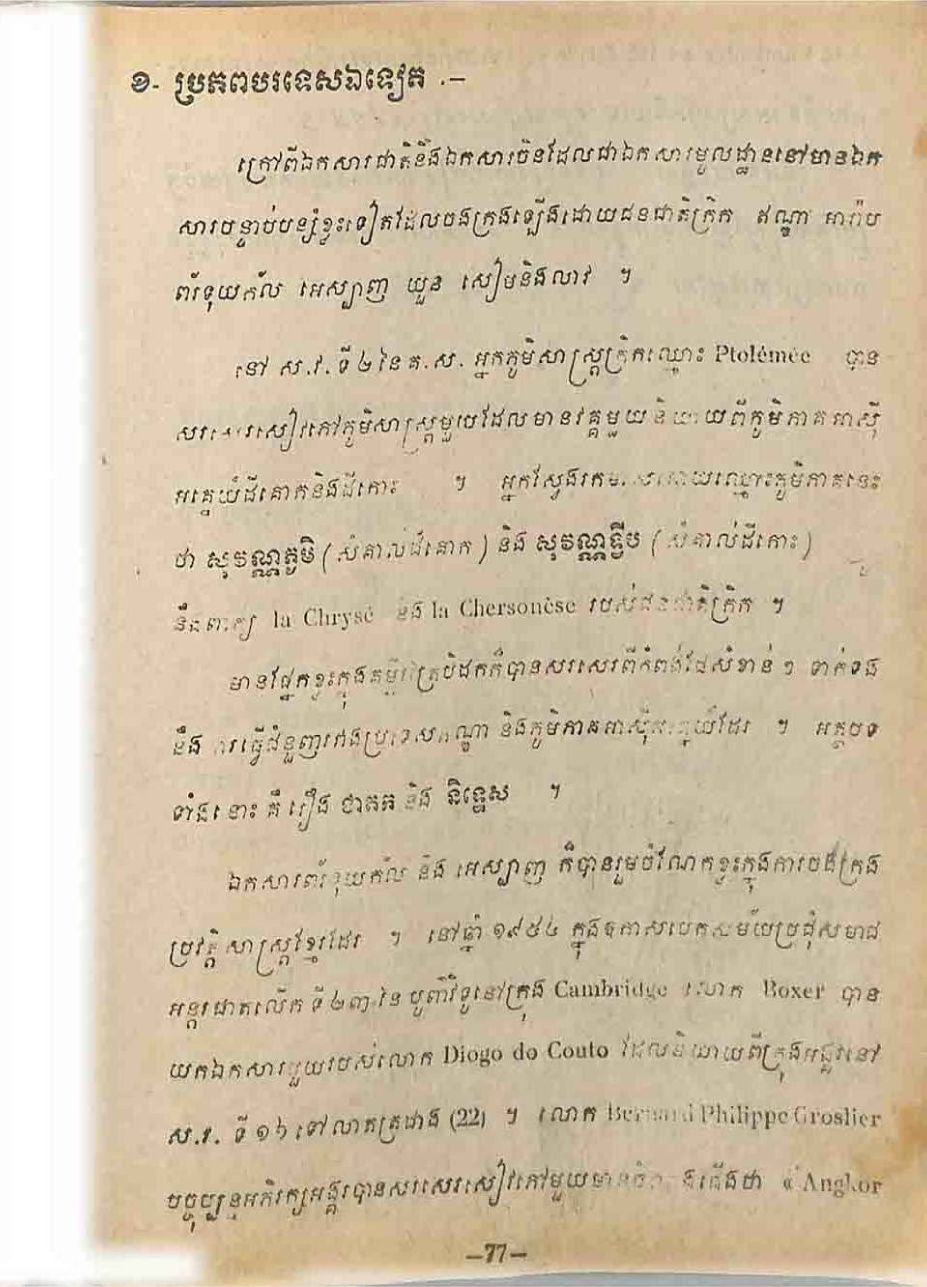 ខ- ប្រភពបរទេសឯទៀត .–
ក្រៅពីឯកសារជាតិនិងឯកសារចិនដែលជាឯកសារមូលដ្ឋាននៅមានឯក
សារបន្ទាប់បន្សំខ្លះទៀតដែលចងក្រងឡើងដោយជនជាតិក្រិក ឥណ្ឌា អារ៉ាប
ព័រទុយកាល់ អេស្បាញ យួន សៀមនិងលាវ ។
នៅ ស.វ. ទី ២ នៃ គ.ស. អ្នកភូមិសាស្ត្រក្រិកឈ្មោះ Ptolémée បាន
សរសេរសៀវភៅភូមិសាស្ត្រមួយដែលមានវគ្គមួយ និយាយពីភូមិភាគអាស៊ី
អគ្នេយ៍ដីគោកនិងដីកោះ ។ អ្នកស្វែងរក ឈ្មោះភូមិភាគនេះ
ថា សុវណ្ណភូមិ ( សំគាល់ដីគោក ) និង សុវណ្ណទ្វីប ( សំគាល់ដីកោះ )
នឹងពាក្យ la Chrysé និង la Chersonèse របស់ជនជាតិក្រិក ។
មានផ្នែកខ្លះក្នុងគម្ពីរត្រៃបិដកក៏បានសរសេរពីកំពង់ផែសំខាន់ ៗ ទាក់ទង
នឹង ការធ្វើជំនួញរវាងប្រទេសឥណ្ឌា និងភូមិភាគអាស៊ីអគ្នេយ៍ដែរ ។ អត្ថបទ
ទាំងនោះ គឺ រឿង ជាតក និង និទ្ទេស ។
ឯកសារព័រទុយកាល់ និង អេស្បាញ ក៏បានរួមចំណែកខ្លះក្នុងការចងក្រង
ប្រវត្តិសាស្ត្រខ្មែរដែរ ។ នៅឆ្នាំ ១៩៥៤ ក្នុងឱកាសបើកសម័យប្រជុំសមាជ
អន្តរជាតលើក ទី ២៣ នៃ បូព៌ាវិទូនៅក្រុង Cambridge លោក Boxer បាន
យកឯកសារមួយរបស់លោក Diogo do Couto ដែលនិយាយពីក្រុងអង្គរនៅ
ស.វ. ទី ១៦ ទៅលាតត្រដាង (22) ។ លោក Bernard Philippe Groslier
បច្ចុប្បន្នអភិរក្សអង្គរបានសរសេរសៀវភៅមួយមានចំណងជើងថា « Angkor
–77–